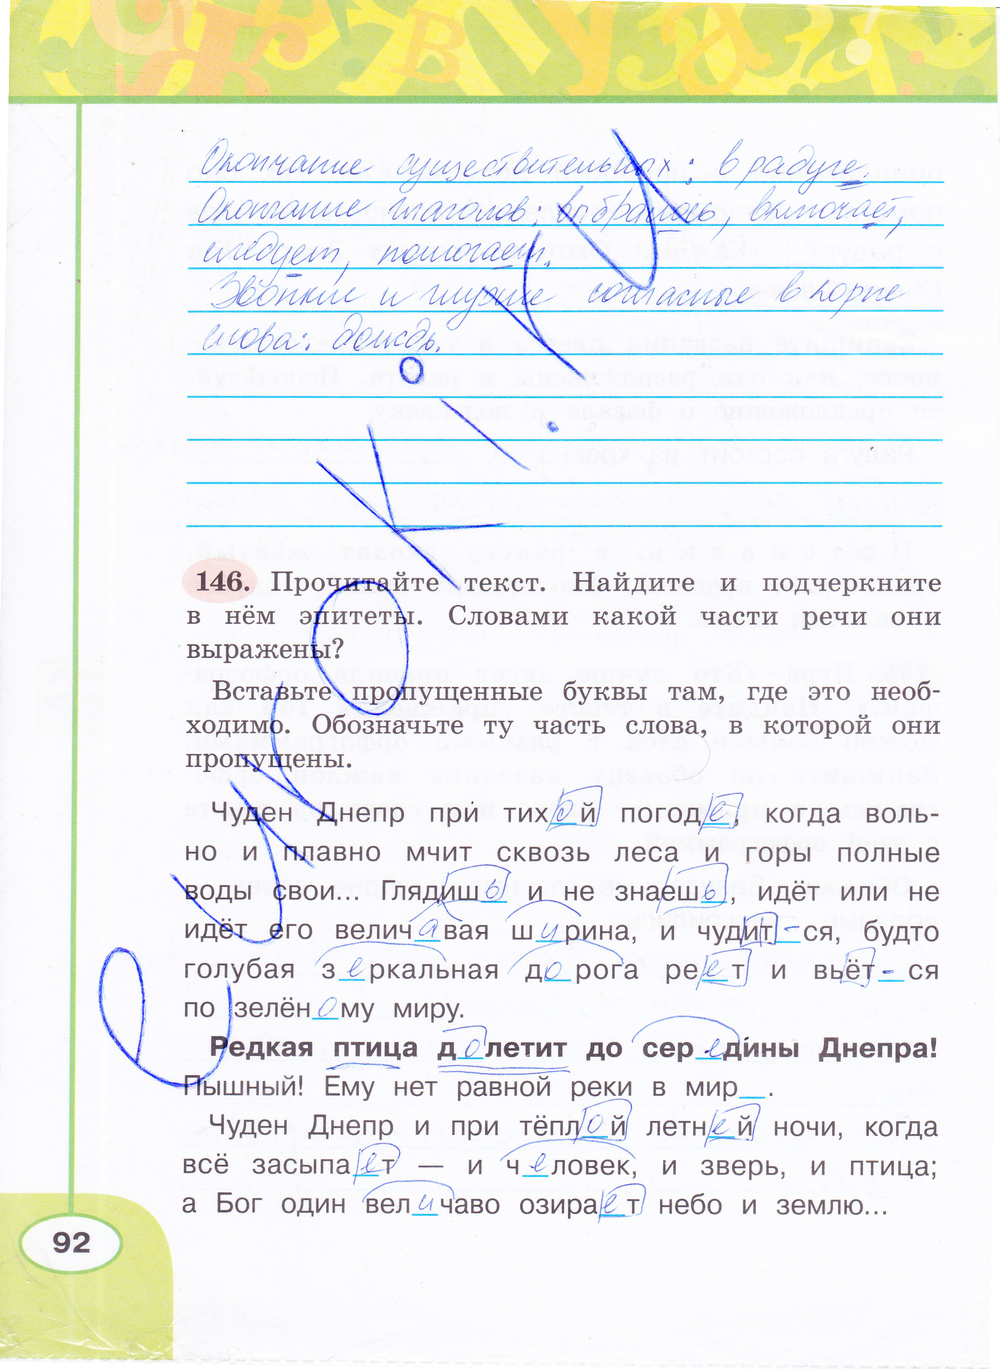 Окончание существительных: в радуге.
Окончание глаголов: выбралось, включает,
следует, помогает.
Звонкие и глухие согласные в корне
слова: дождь.
146. Прочитайте текст. Найдите и подчеркните
в нём эпитеты. Словами какой части речи они
выражены?
Вставьте пропущенные буквы там, где это необ-
ходимо. Обозначьте ту часть слова, в которой они
пропущены.
Чуден Днепр при́ тихой погоде, когда воль-
но и плавно мчит сквозь леса и горы полные
воды свои... Глядишь и не знаешь, идёт или не
идёт его величавая ширина, и чудит-ся, будто
голубая зеркальная дорога реет и вьёт-ся
по зелёному миру.
Редкая птица долетит до середи́ны Днепра!
Пышный! Ему нет равной реки в мир_.
Чуден Днепр и при тёплой летней ночи, когда
всё засыпает — и человек, и зверь, и птица;
а Бог один величаво озирает небо и землю...
92
еуроки.ru